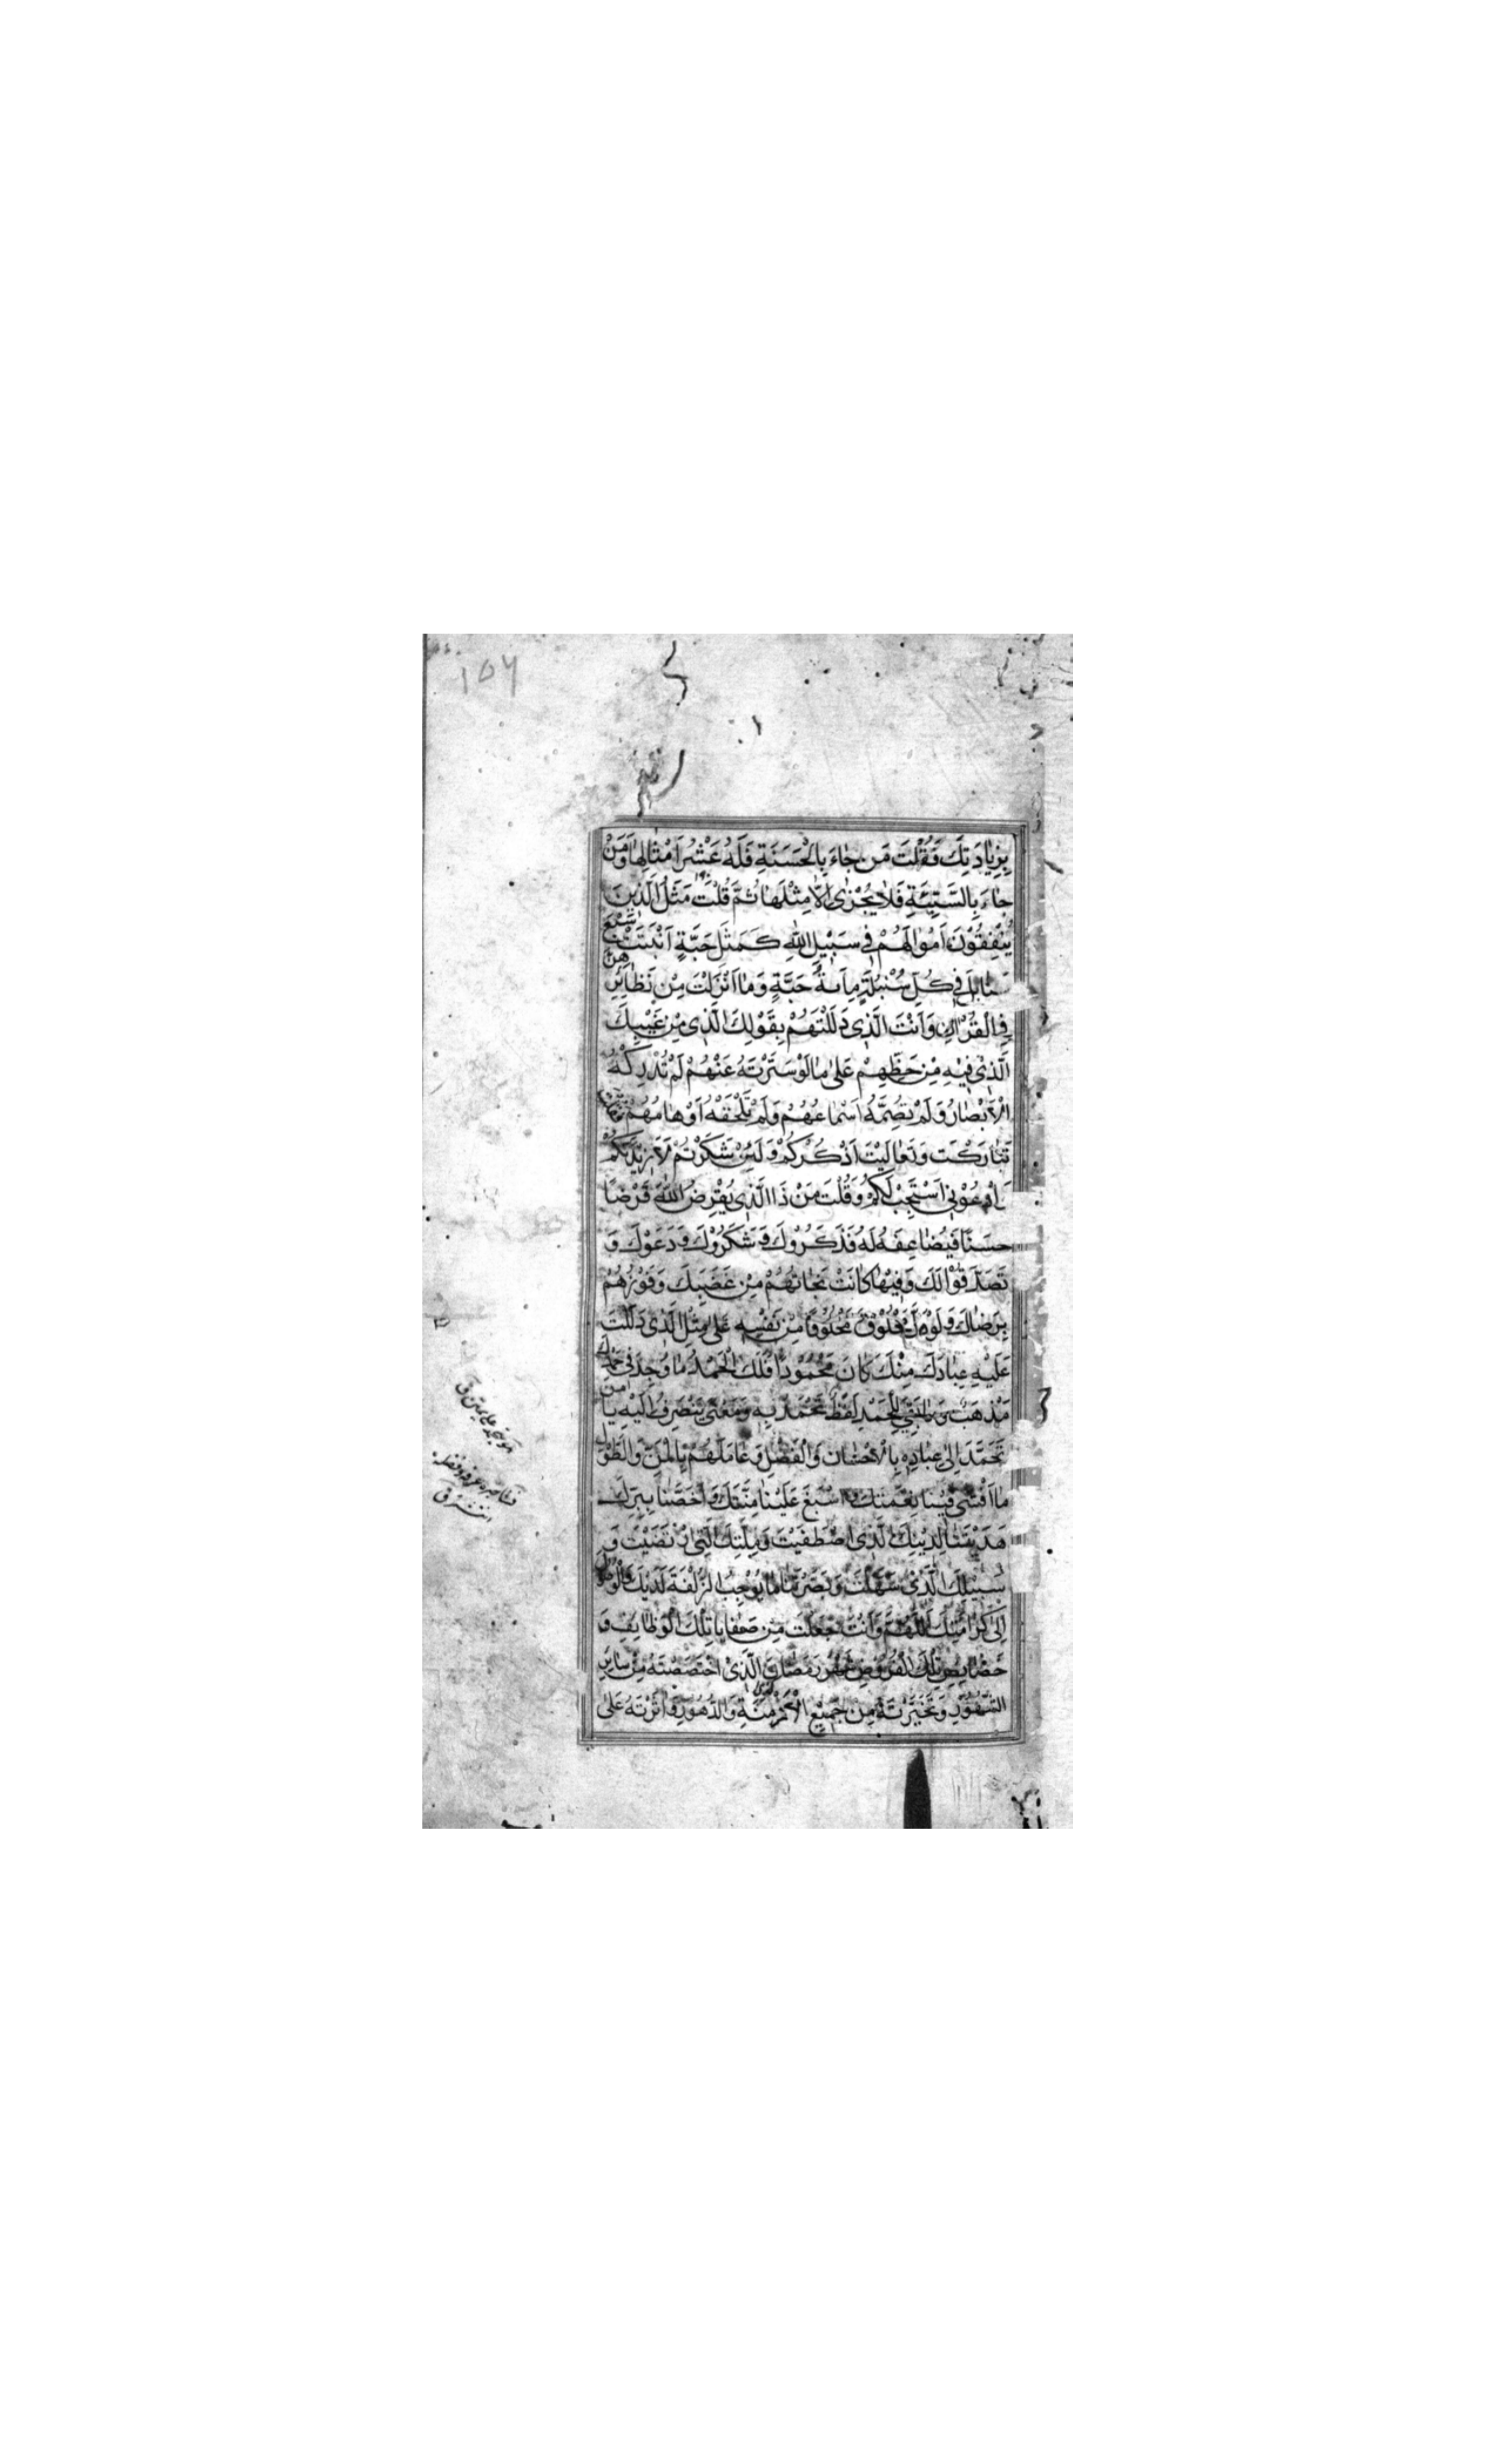 ۱۵۶
بِزِيٰادَتِكَ فَقُلْتَ مَن جٰاءَ بِالْحَسَنَةِ فَلَهُ عَشْرُ اَمْثٰالِهٰا وَمَنْ
جٰاءَ بِالسَّيِّئَةِ فَلٰا يُجْزىٰ اِلّٰا مِثْلَهٰا ثُمَّ قُلْتَ مَثَلُ الَّذينَ
يُنْفِقُوْنَ اَمْوٰالَهُمْ فى سَبيْلِ اللّٰهِ كَمَثَلِ حَبَّةٍ اَنْبَتَتْ سَبْعَ
سَنٰابِلَ فى كُلِّ سُنْبُلَةٍ مِاَئةُ حَبَّةٍ وَمٰا اَنْزَلْتَ مِنْ نَظٰائِرِهِنَّ
فِى الْقُرْاٰنِ وَاَنْتَ الَّذى دَلَلْتَهُمْ بِقَوْلِكَ الَّذى مِنْ غَيْبِكَ
الَّذى فيْهِ مِنْ حَظِّهِمْ عَلىٰ مٰا لَوْ سَتَرْتَهُ عَنْهُمْ لَمْ تُدْرِكْهُ
الْاَبْصٰارُ وَلَمْ تُصِمَّهُ اَسْمٰاعُهُمْ وَلَمْ تَلْحَقْهُ اَوْهٰامُهُمْ
تَبٰارَكْتَ وَتَعٰالَيْتَ اَذْكُرْكُمْ وَلَئِنْ شَكَرْتُمْ لَاَزيْدَنَّكُمْ
اُدْعُوْنى اَسْتَجِبْ لَكُمْ وَقُلْتَ مَنْ ذَا الَّذى يُقْرِضُ اللّٰهَ قَرْضًا
حَسَنًا فَيُضٰاعِفَهُ لَهُ فَذَكَرُوْكَ وَشَكَرُوْكَ وَدَعَوْكَ وَ
تَصَدَّقُوْا لَكَ وَفيْهٰا كٰانَتْ نَجٰاتُهُمْ مِنْ غَضَبِكَ وَفَوْزُهُمْ
بِرِضٰاكَ وَلَوْ دَلَّ مَخْلُوْقٌ مَخْلُوْقًا مِنْ نَفْسِهِ عَلىٰ مِثْلِ الَّذى دَلَلْتَ
عَلَيْهِ عِبٰادَكَ مِنْكَ كٰانَ مَحْمُوْدًا فَلَكَ الْحَمْدُ مٰا وُجِدَ فى حَمْدِكَ
مَذْهَبٌ وَمٰا بَقِىَ لِلْحَمْدِ لَفْظٌ تُحْمَدُ بِهِ وَمَعْنًى يَنْصَرِفُ اِلَيْهِ يٰا مَنْ
تَحَمَّدَ اِلىٰ عِبٰادِهِ بِالْاِحْسٰانِ وَالْفَضْلِ وَعٰامَلَهُمْ بِالْمَنِّ وَالطَّوْلِ
مٰا اَفْشىٰ فيْنٰا نِعْمَتَكَ وَاَسْبَغَ عَلَيْنٰا مِنَّتَكَ وَاَخَصَّنٰا بِبِرِّكَ
هَدَيْتَنٰا لِديْنِكَ الَّذى اصْطَفَيْتَ وَمِلَّتِكَ الَّتى ارْتَضَيْتَ وَ
سَبيْلِكَ الَّذى سَهَّلْتَ وَبَصَّرْتَنٰا مٰا يُوْجِبُ الزُّلْفَةَ لَدَيْكَ وَالْوُصُوْلَ
اِلىٰ كَرٰامَتِكَ اَللّٰهُمَّ وَاَنْتَ جَعَلْتَ مِنْ صَفٰايٰا تِلْكَ الْوَظٰايِفِ وَ
خَصٰايِصِ تِلْكَ الْفُرُوْضِ شَهْرَ رَمَضٰانَ الَّذى اخْتَصَصْتَهُ مِنْ سٰايِرِ
الشُّهُوْرِ وَتَخَيَّرْتَهُ مِنْ جَميْعِ الْاَزْمِنَةِ وَالدُّهُوْرِ وَاٰثَرْتَهُ عَلىٰ